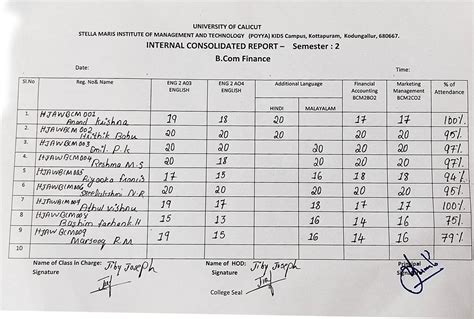 UNIVERSITY OF CALICUT
STELLA MARIS INSTITUTE OF MANAGEMENT AND TECHNOLOGY (POYYA) KIDS Campus, Kottapuram, Kodungallur, 680667.
INTERNAL CONSOLIDATED REPORT – Semester : 2
B.Com Finance
Date: Time:
Sl.No Reg. No& Name ENG 2 A03 ENGLISH ENG 2 A04 ENGLISH Additional Language HINDI MALAYALAM Financial Accounting BCM2B02 Marketing Management BCM2C02 % of Attendance
1. HJAWBCM001 Anand Krishna 19 18 20 17 17 100%
2. HJAWBCM002 Babu 20 20 20 20 20 95%
3. HJAWBCM003 P.K 20 20 20 20 20 97%
4. HJAWBCM004 Reshma M.S 20 20 20 20 20 97%
5. HJAWBCM005 17 15 16 18 18 94%
6. HJAWBCM006 N.R 20 20 20 20 20
7. HJAWBCM007 Athul vishnu 19 19 18 17 17 100%
8. HJAWBCM008 15 13 16 14 16 75%
9. HJAWBCM009 R.M 15 15 16 14 16 79%
10
Name of Class in Charge: Jiby Joseph Name of HOD: Jiby Joseph Principal
Signature Signature Signature
College Seal